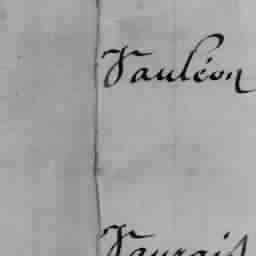 Vauléon
Vaurais